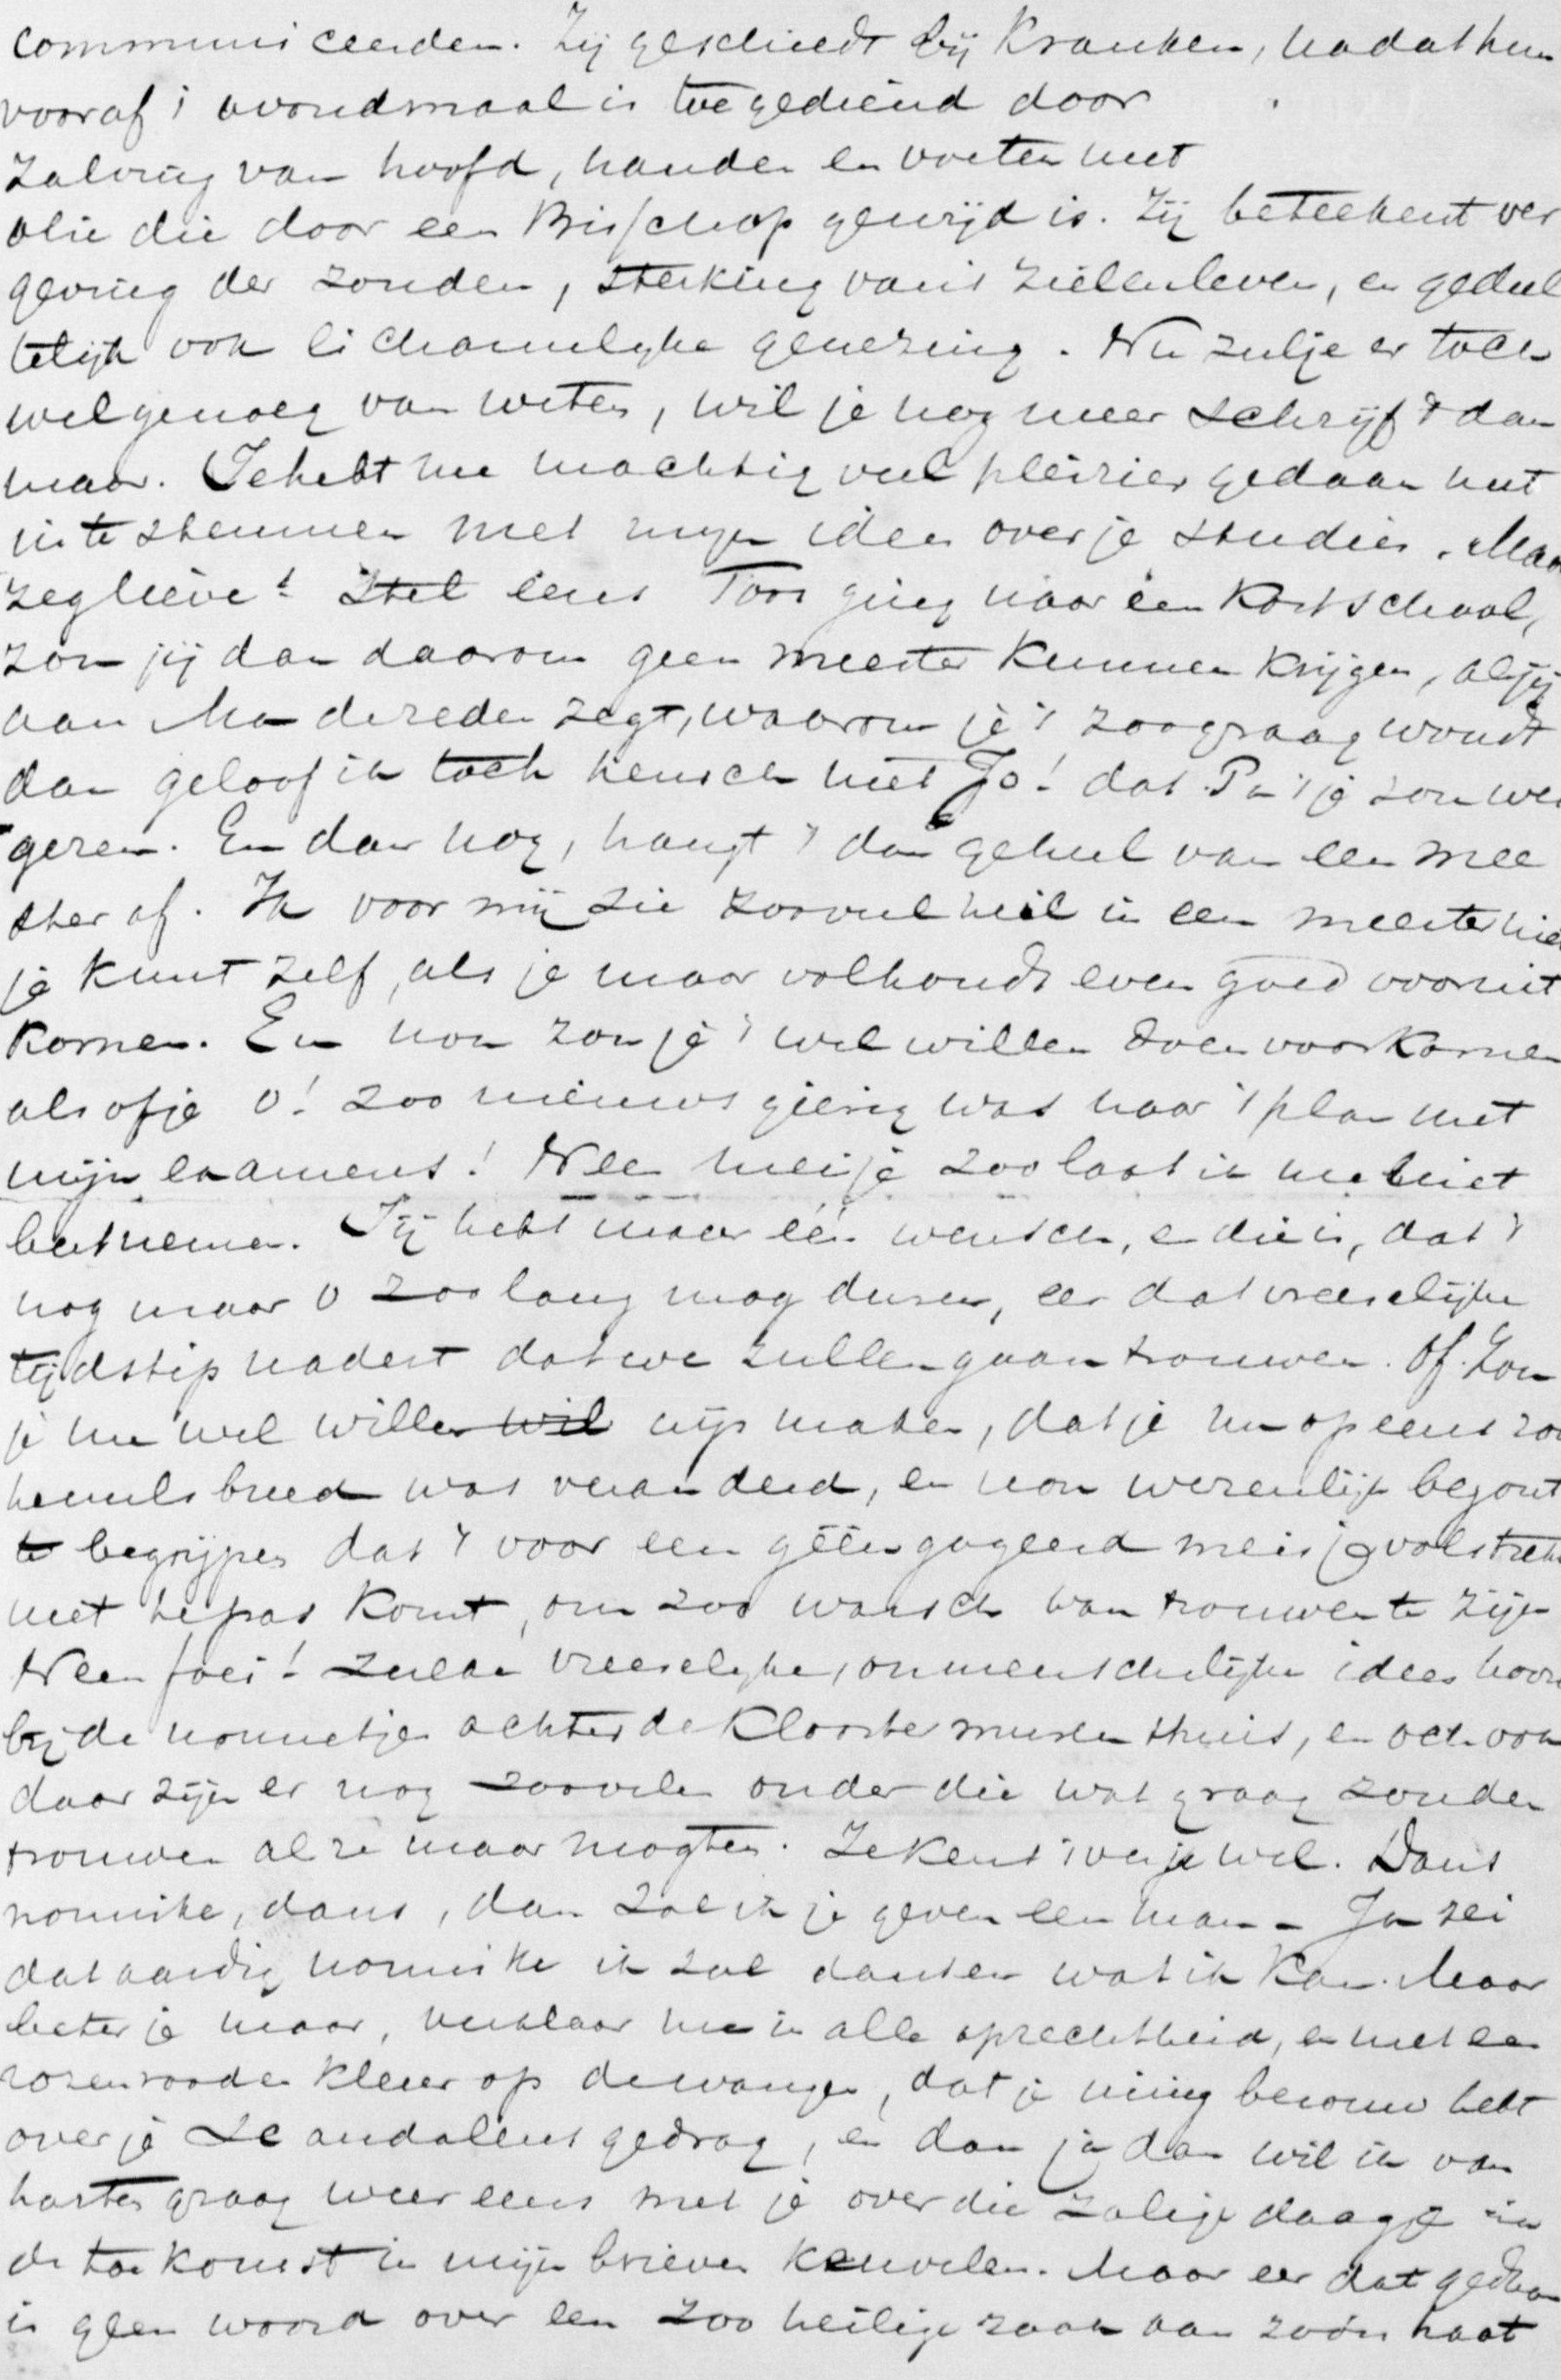 communiceerden. Zij geschiedt bij Kranken, nadat hun
vooraf 't avondmaal is toegediend door
zalving van hoofd, handen en voeten met
olie die door een Bisschop gewijd is. Zij beteekent ver
geving der zonden, sterking van 't zielenleven, en gedeel
telijk ook lichamelyke genezing. Nu zulje er toch
wel genoeg van weten, wil je nog meer schrijf 't dan
maar. Je hebt me machtig veel pleizier gedaan met
in te stemmen met myn idee over je studies. Maar
zeg lieve! Stel eens Toos ging naar een Kostschool,
zou jij dan daarom geen meester kunnen krijgen, als jij
aan Ma de reden zegt, waarom je 't zoo graag woudt
dan geloof ik toch heusch niet Jo! dat Pa 't je zou wei
geren. En dan nog, hangt 't dan geheel van een mee
ster af. Ik voor mij zie zooveel heil in een meester niet
je kunt zelf, als je maar volhoudt even goed vooruit
komen. En nou zou je 't wel willen doen voorkomen
alsof je o! zoo nieuwsgierig was naar 't plan met
mijn examens! Neen meisje zoo laat ik me niet
beetnemen. Jij hebt maar één wensch, en die is, dat 't
nog maar o zoo lang mag duren, eer dat vreeselijke
tijdstip nadert dat we zullen gaan trouwen. Of zou
je me wel willen wil wijs maken, dat je nu opeens zoo
hemelsbreed was veranderd, en nou wezenlijk begont
te begrijpen dat 't voor een geëngageerd meisje volstrekt
niet te pas komt, om zoo warsch van trouwen te zijn
Neen foei! zulke vreeselyke, onmenschelijke idees hooren
bij de nonnetjes achter de Kloostermuren thuis, en och ook
daar zijn er nog zoovelen onder die wat graag zouden
trouwen al ze maar mogten. Je kent 't versje wel. Dans
nonneke, dans, dan zal ik je geven een man - Ja zei
dat aardig nonneke ik zal dansen wat ik kan. Maar
beter je maar, verklaar me in alle oprechtheid, en met een
rozenrooden kleur op de wangen, dat je innig berouw hebt
over je scandaleus gedrag, en dan ja dan wil ik van
harten graag weer eens met je over die zalige daagje in
de toekomst in mijn brieven keuvelen. Maar eer dat gedaan
is geen woord over een zoo heilige zaak aan zoo'n haat